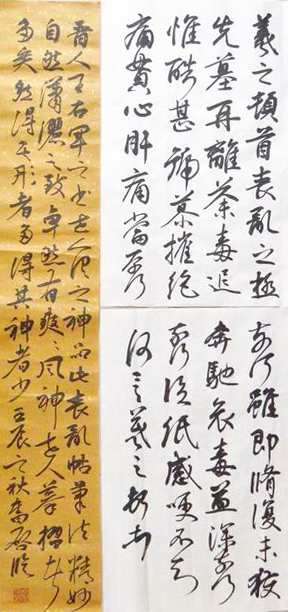 羲之頓首喪亂之極
先墓再離荼毒追
惟酷甚號慕摧絕
痛貫心肝痛當奈何
奈何雖即脩復未獲
奔馳哀毒益深奈何
奈何臨紙感哽不知
何言羲之頓首
晉人王右軍之書世人謂之神品此喪亂帖筆法精妙
自然瀟灑之致卓然風神世人摹搨者
多矣然得其形者多得其神者少壬辰之秋臨